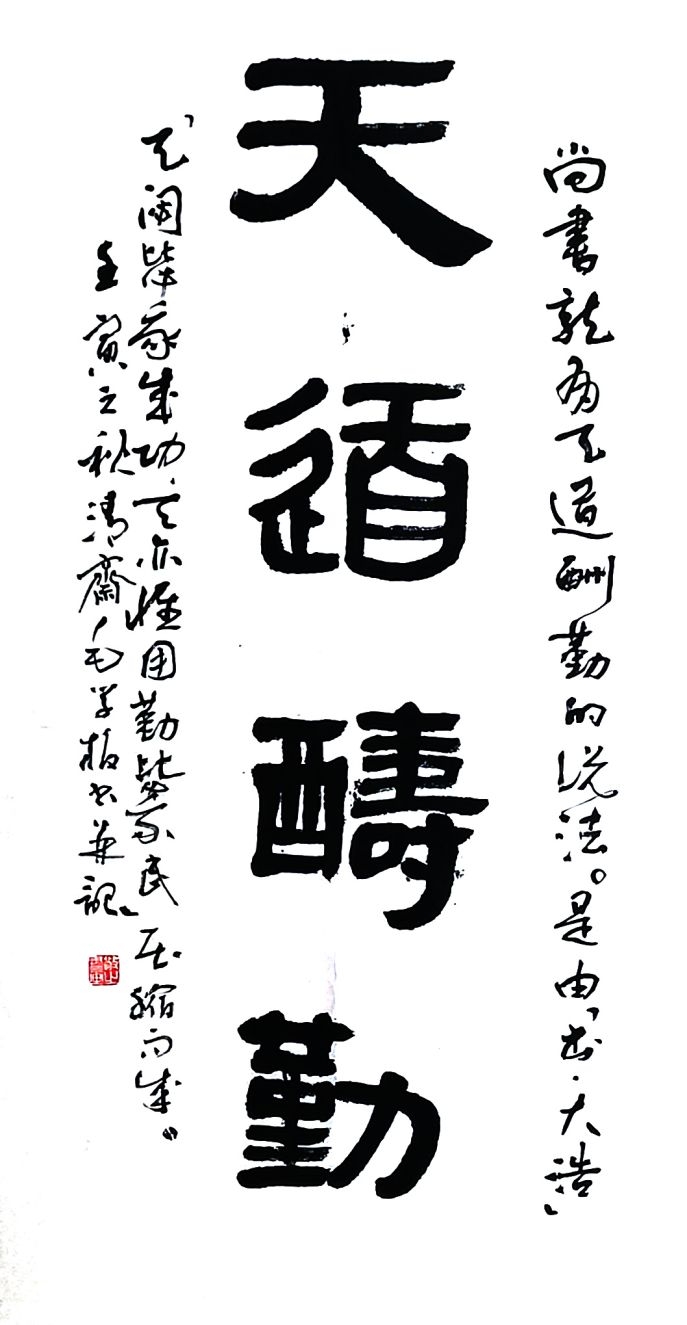 尚書就有天道酬勤的说法。是由「书·大浩」
天道醻勤
「天閟毖我成功,天亦惟用勤毖我民」压縮而成。
壬寅之秋清齋毛学书並記